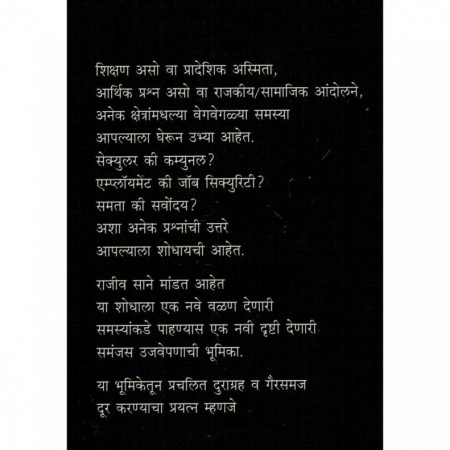 शिक्षण असो वा प्रादेशिक अस्मिता,
आर्थिक प्रश्न असो वा राजकीय/सामाजिक आंदोलने,
अनेक क्षेत्रांमधल्या वेगवेगळ्या समस्या
आपल्याला घेरून उभ्या आहेत.
सेक्युलर की कम्युनल?
एम्प्लॉयमेंट की जॉब सिक्युरिटी?
समता की सर्वोदय?
अशा अनेक प्रश्नांची उत्तरे
आपल्याला शोधायची आहेत.
राजीव साने मांडत आहेत
या शोधाला एक नवे वळण देणारी
समस्यांकडे पाहण्यास एक नवी दृष्टी देणारी
समंजस उजवेपणाची भूमिका.
या भूमिकेतून प्रचलित दुराग्रह व गैरसमज
दूर करण्याचा प्रयत्न म्हणजे